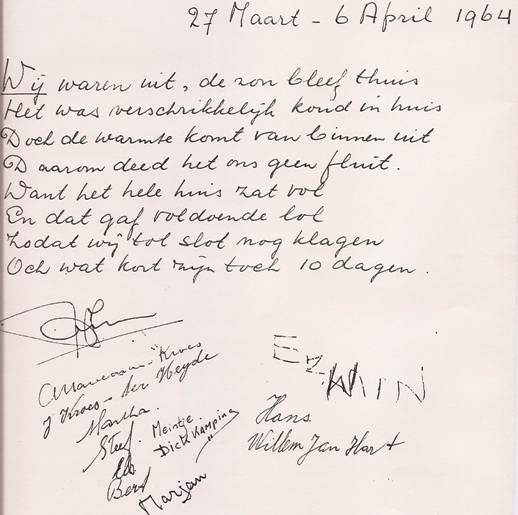 27 Maart - 6 April 1964
Wij waren uit, de zon bleef thuis
Het was verschrikkelijk koud in huis
Doch de warmte komt van binnen uit
Daarom deed het ons geen fluit.
Want het hele huis zat vol
En dat gaf voldoende lol
Zodat wij tot slot nog klagen
Och wat kort zijn toch 10 dagen.
Kroes
J Kroes - der Heyde
Martha.
Stef.
Meintje.
Dick Kamping
Bert
Marjan
ERWIN
Hans
Willem Jan Hart